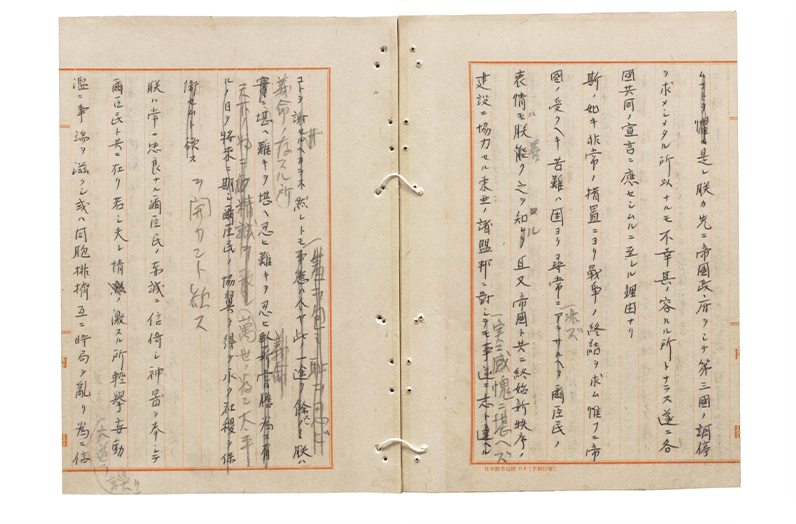 是レ朕カ先ニ帝國政府ヲシテ第三國ノ調停
ヲ求メシメタル所以ナルモ不幸其ノ容ルル所トナラス遂ニ各
國共同ノ宣言ニ應セシムルニ至レル理由ナリ
斯ノ如キ非常ノ措置ニヨリ戰爭ノ終結ヲ求ム惟フニ帝
國ノ受クヘキ苦難ハ固ヨリ尋常ニアラサルヘク爾臣民ノ
表情モ朕能ク之ヲ知ル且又帝國ト共ニ終始新秩序ノ
建設ニ協力セル東亜ノ諸盟邦ニ對シテモ事遂ニ志ト違ヘル
実ニ感愧ニ堪ヘズ
コトヲ謝セ 然レトモ事態ハ今ヤ此ノ一途ヲ餘ス 朕ハ
義命ノ存スル所
堪ヘ難キヲ堪ヘ忍ヒ難キヲ忍ヒ
萬世ノ為ニ太平
ヲ将来ニ期シ爾臣民ノ協翼ヲ得テ永ク社稷ヲ保
衛セムト欲ス
ヲ開カント欲ス
朕ハ常ニ忠良ナル爾臣民ノ赤誠ニ信倚シ神器ヲ奉シテ
爾臣民ト共ニ在リ若シ夫レ情ノ激スル所輕擧妄動
濫ニ事端ヲ滋クシ或ハ同胞排擠互ニ時局ヲ亂リ為ニ信
大道ヲ誤リ